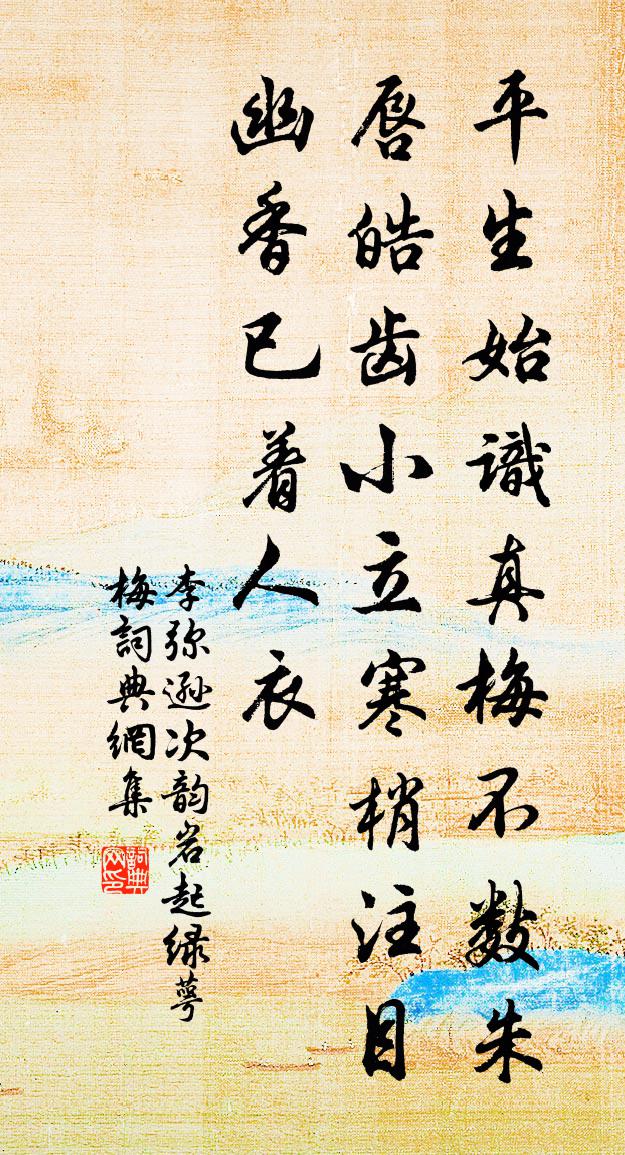 平生始識真梅不数朱
唇皓齿小立寒梢注目
幽香已着人衣
李弥逊次韵岩起绿萼
梅詞典網集
詞典
网印